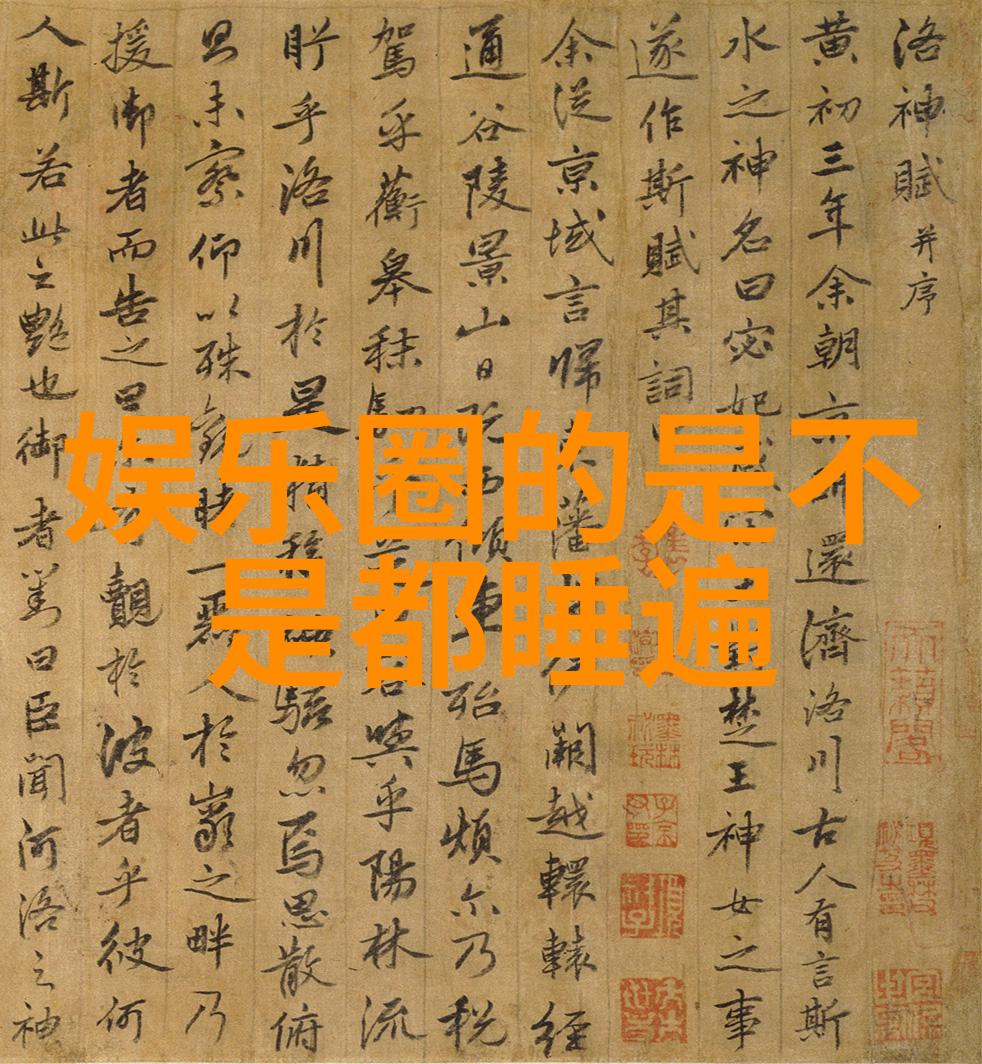 娱乐圈的是不
是都睡遍
洛神賦并序
黄初三年余朝京還濟洛川古人有言斯
水之神名曰宓妃感楚王神女之事
遂作斯賦其詞
余從京域言歸藩伊闕越轘轅經
通谷陵景山日既西傾車殆馬煩尒乃税
駕乎蘅皋秣駟與乎陽林流
眄乎洛川於是精移駭忽焉思散俯
則未察仰以殊觀睹一麗人於巖之畔乃
援御者而告之曰覿於彼者乎彼何
人斯若此之艷也御者對曰臣聞河洛之神